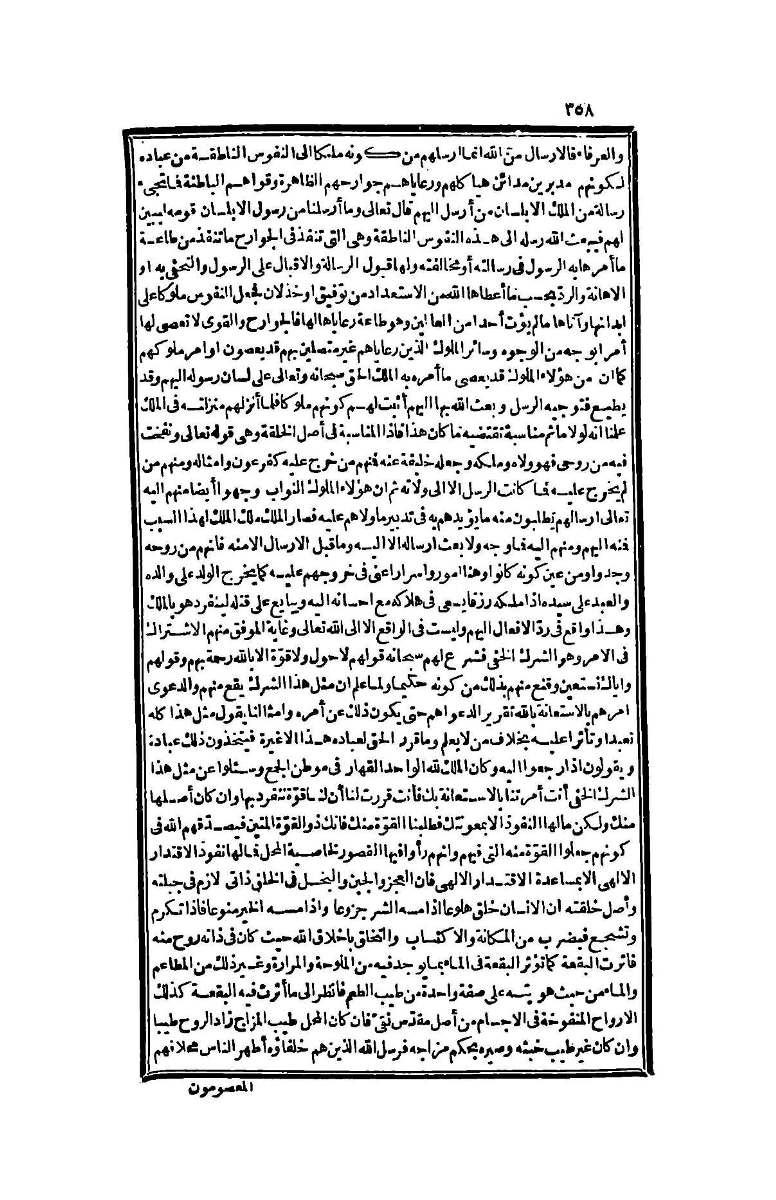 ٣٥٨
والعرفاء فالارسال من الله انما ارسلهم من كونه ملكا الى النفوس الناطقة من عباده
لكونهم مدبرين مدائن هياكلهم ورعاياهم جوارحهم الظاهرة وقواهم الباطنة فما تجيء
رسالة من الملك الا بلسان من أرسل اليهم قال تعالى وما أرسلنا من رسول الا بلسان قومه ليبين
لهم فيبعث الله رسله الى هذه النفوس الناطقة وهى التى تنفذ فى الجوارح ما تنفذ من طاعة
ما أمرها به الرسول فى رسالته أو مخالفته ولها قبول الرسالة والاقبال على الرسول والتحفى به او
الاهانة والرد بحسب ما أعطاها الله من الاستعداد من توفيق او خذلان فجعل النفوس ملوكا على
ابدانها وآتاها ما لم يؤت أحدا من العالمين وهو طاعة رعاياها لها فالجوارح والقوى لا تعصى لها
أمرا بوجه من الوجوه وسائر الملوك الذين رعاياهم غير متصلين بهم قد يعصون اوامر ملوكهم
كما ان من هؤلاء الملوك قد يعصى ما أمره به الملك الحق سبحانه وتعالى على لسان رسوله اليهم وقد
يطيع فتوجيه الرسل وبعث الله بها اليهم أثبت لهم كونهم ملوكا فلما أنزلهم منزلته فى الملك
علمنا انه لولا ما ثم مناسبة تقتضيه ما كان هذا فاذا المناسبة فى أصل الخلقة وهى قوله تعالى ونفخت
فيه من روحى فهو ولاه وملكه وجعله خليفة عنه فمنهم من خرج عليه كفرعون وامثاله ومنهم من
لم يخرج عليه فما كانت الرسل الا الى ولاته ثم ان هؤلاء الملوك النواب وجهوا أيضا منهم اليه
تعالى ارسالهم يطلبون منه ما يؤيدهم به فى تدبير ما ولاهم عليه فصار الملك ملك الملك لهذا السبب
فمنه اليهم ومنهم اليه فما وجه ولا بعث ارساله الا اليه وما قبل الارسال الا منه فانهم من روحه
وجدوا ومن عين كونه كانوا وهنا امور واسرار اعنى فى خروجهم عليه كما يخرج الولد على والده
والعبد على سيده اذا ملكه رزقا يسعى فى هلاكه مع احسانه اليه ويبايع على قتله لينفرد هو بالملك
وهذا واقع فى رد الافعال اليهم وليست فى الواقع الا الى الله تعالى وغاية الموفق منهم الاشتراك
فى الامر وهو الشرك الخفى فشرع لهم سبحانه قولهم لا حول ولا قوة الا بالله رحمة بهم وقولهم
واياك نستعين وقنع منهم بذلك من كونه حكيما ولما علم ان مثل هذا الشرك يقع منهم والدعوى
امرهم بالاستعانة بالله تقرير الدعواهم حتى يكون ذلك عن أمره وامثالنا يقول مثل هذا كله
تعبدا وتأثرا عليه بخلاف من لا يعلم وما قرر الحق لعباده هذا الا غيرة فيتخذون ذلك عبادة
ويقولون اذا رجعوا اليه وكان الملك لله الواحد القهار فى موطن الجمع وسئلوا عن مثل هذا
الشرك الخفى أنت أمرتنا بالاستعانة بك فأنت قررت لنا أن لنا قوة ننفرد بها وان كان أصلها
منك ولكن ما لها النفوذ الا بمعونتك فطلبنا القوة منك فانك ذو القوة المتين فيصدقهم الله فى
كونهم جعلوا القوة منه التى فيهم وانهم رأوا فيها القصور لخاصية المحل فما لها نفوذ الاقتدار
الالهى الا بمساعدة الاقتدار الالهى فان العجز والجبن والبخل فى الخلق ذاتى لازم فى جبلته
وأصل خلقته ان الانسان خلق هلوعا اذا مسه الشر جزوعا واذا مسه الخير منوعا فاذا تكرم
وتشجع فبضرب من المكانة والاكتساب والتخلق باخلاق الله حيث كان فى ذاته روح منه
فأثرت البقعة كما تؤثر البقعة فى الماء بما يوجد فيه من الملوحة والمرارة وغير ذلك من المطاعم
والماء من حيث هويته على صفة واحدة من طيب الطعم فانظر الى ما أثرت فيه البقعة كذلك
الارواح المنفوخة فى الاجسام من أصل مقدس نقى فان كان المحل طيب المزاج زاد الروح طيبا
وان كان غير طيب خبثه وصيره بحكم مزاجه فرسل الله الذين هم خلفاؤه أطهر الناس محلا فهم
المعصومون